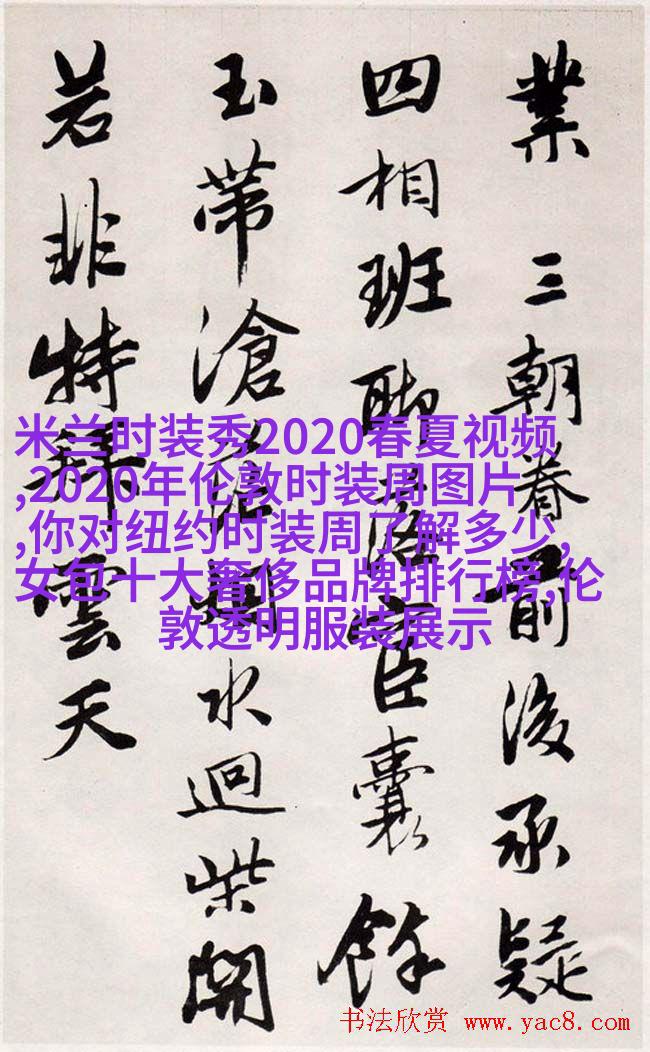 業三朝眷前後承疑
四相班臣囊餘
玉帶滄水迴柴開
若非特拜雲天
米兰时装秀2020春夏视频
,2020年伦敦时装周图片
,你对纽约时装周了解多少,
女包十大奢侈品牌排行榜,伦
敦透明服装展示
书法欣赏 www.yac8.com